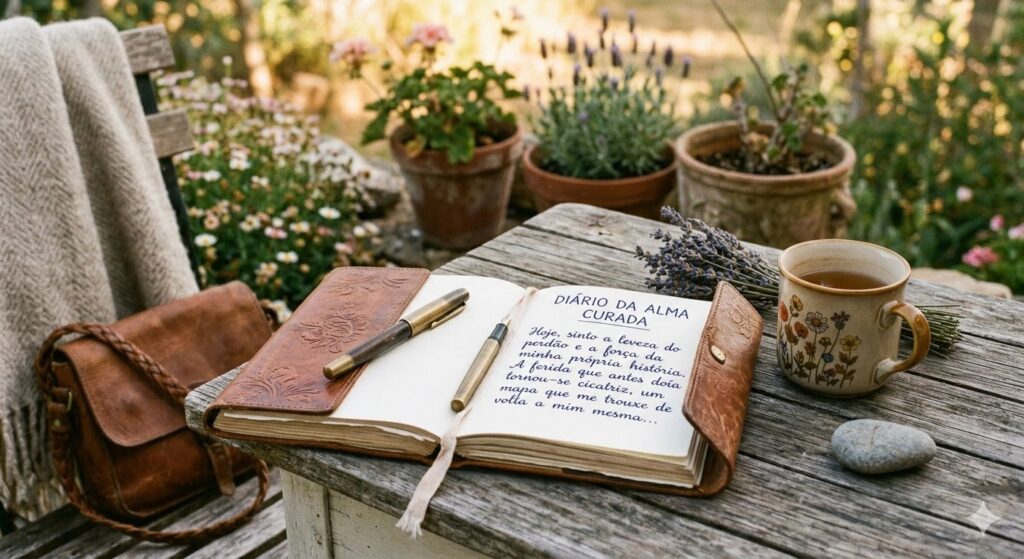 DIÁRIO DA ALMA
CURADA
Hoje, sinto a leveza do
perdão e a força da
minha própria história.
A ferida que antes doía
tornou-se cicatriz, um
mapa que me trouxe de
volta a mim mesma...